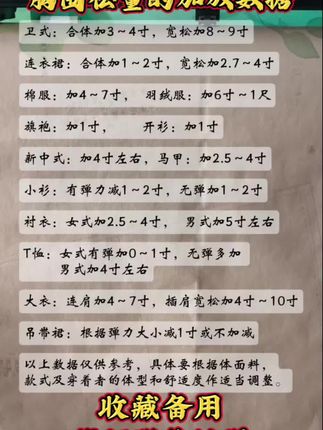 胸围松量的加放数据
卫式：合体加3～4寸，宽松加8～9寸
连衣裙：合体加1～2寸，宽松加2.7～4寸
棉服：加4～7寸，羽绒服：加6寸～1尺
旗袍：加1寸，开衫：加1寸
新中式：加4寸左右，马甲：加2.5～4寸
小衫：有弹力减1～2寸，无弹加1～2寸
衬衣：女式加2.5～4寸，男式加5寸左右
T恤：女式有弹加0～1寸，无弹多加
男式加4寸左右
大衣：连肩加4～7寸，插肩宽松加4寸～10寸
吊带裙：根据弹力大小减1寸或不加减
以上数据仅供参考，具体要根据体面料，
款式及穿着者的体型和舒适度作适当调整。
收藏备用